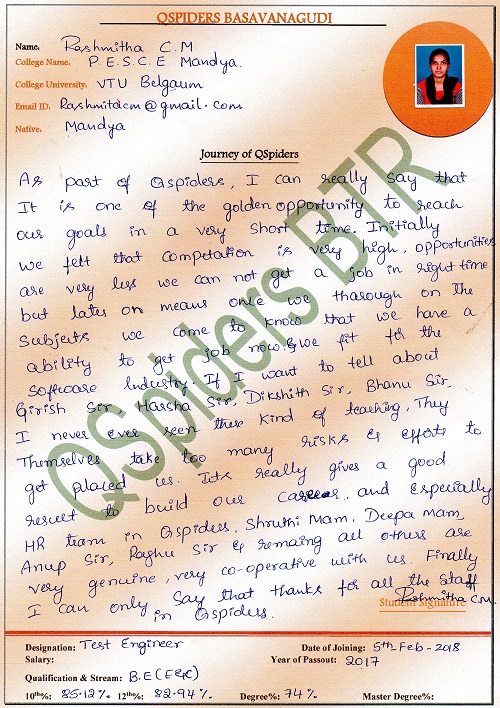 QSPIDERS BASAVANAGUDI
Name. Rashmitha C.M
College Name. P.E.S.C.E Mandya.
College University. VTU Belgaum
Email ID. Rashmitdcm@gmail.com
Native. Mandya
Journey of QSpiders
As part of Qspiders, I can really say that
It is one of the golden opportunity to reach
our goals in a very short time. Initially
we felt that competation is very high, opportunities
are very less we can not get a job in right time
but later on means once we thorough on the
subjects we come to know that we have a
ability to get job now.& we fit for the
software Industry. If I want to tell about
Girish Sir, Harsha Sir, Dikshith Sir, Bhanu Sir
I never ever seen these kind of teaching. They
Themselves take too many risks & efforts to
get placed us. Its really gives a good
result to build our career, and Especially
HR team in Qspiders, Shruthi Mam, Deepa Mam
Anup Sir, Raghu Sir & remaing all others are
very genuine, very co-operative with us. Finally
I can only say that thanks for all the staff
in Qspiders.
Rashmitha C.M.
Student Signature
QSpiders BTR
Designation: Test Engineer Date of Joining: 5th Feb-2018
Salary: Year of Passout: 2017
Qualification & Stream: B.E (E&C)
10th%: 85.12% 12th%: 82.94% Degree%: 74% Master Degree%: